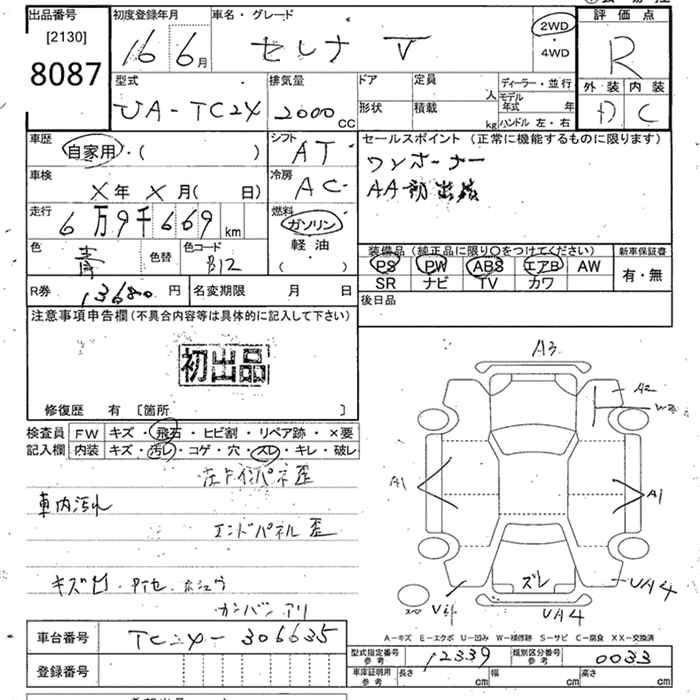 出品番号
[2130]
8087
初度登録年月
16 6月
車名・グレード
セレナ V
2WD
・
4WD
評価点
R
外装 内装
D C
型式
UA-TC24
排気量
2000 CC
ドア
形状
定員 人
積載 kg
ディーラー・並行
モデル年式 年
ハンドル 左・右
車歴
自家用・( )
シフト
AT
車検
X年 X月( 日)
冷房
AC
走行
6万9千669 km
燃料
ガソリン
軽油
( )
色
青
色替
色コード
B12
R券
13680円
名変期限 月 日
セールスポイント(正常に機能するものに限ります)
ワンオーナー
AA初出品
装備品(純正品に限り○をつけてください)
PS PW ABS エアB AW
SR ナビ TV カワ
新車保証書
有・無
後日品
注意事項申告欄(不具合内容等は具体的に記入して下さい)
初出品
修復歴 有 〔箇所 〕
検査員
記入欄
FW キズ・飛石・ヒビ割・リペア跡・×要
内装 キズ・汚レ・コゲ・穴・スレ・キレ・破レ
車内汚れ
エンドパネル歪
カンバンアリ
A3
A2
W2
A1
A1
ズレ
UA4
UA4
A-キズ E-エクボ U-凹み W-補修跡 S-サビ C-腐食 XX-交換済
車台番号
TC24-306635
登録番号
型式指定番号
参考
12339
類別区分番号
参考
0033
車庫証明用
参考
長さ cm
幅 cm
高さ cm